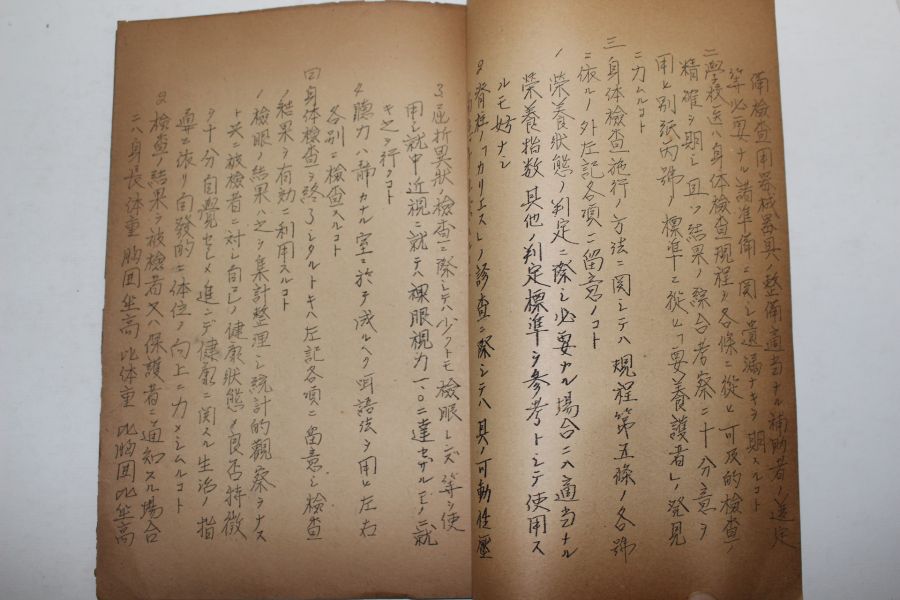 備検査用器械器具ノ整備適当ナル補助者ノ選定
等必要ナル諸準備ニ関シ遺漏ナキヲ期スルコト
二学校医ハ身体検査規程ノ各條ニ従ヒ可及的検査ノ
精確ヲ期シ且ツ結果ノ綜合考察ニ十分意ヲ
用ヒ別紙丙號ノ標準ニ従ヒ「要養護者」ノ発見
ニ力ムルコト
三身体検査施行ノ方法ニ関シテハ規程第五條ノ各號
ニ依ルノ外左記各項ニ留意ノコト
1 榮養狀態ノ判定ニ際シ必要ナル場合ニハ適当ナル
榮養指数其他ノ判定標準ヲ参考トシテ使用ス
ルモ妨ナシ
2 脊柱「カリエス」ノ診査ニ際シテハ其ノ可動性壓
3 屈折異狀ノ検査ニ際シテハ少クトモ検眼レンズ等ヲ使
用シ就中近視ニ就テハ裸眼視力一.〇ニ達セザルモノニ就
キ之ヲ行フコト
4 聽力ハ静カナル室ニ於テ成ルヘク囁語法ヲ用ヒ左右
各別ニ検査スルコト
四身体検査ヲ終了シタルトキハ左記各項ニ留意シ検査
ノ結果ヲ有効ニ利用スルコト
1 検眼ノ結果ハ之ヲ集計整理シ統計的観察ヲナス
ト共ニ被検者ニ対シ自己ノ健康狀態ノ良否特徴
ヲ十分自覺セシメ進ンデ健康ニ関スル生活ノ指
導ニ依リ自発的ニ体位ノ向上ニ力メシムルコト
2 検査ノ結果ヲ被検者又ハ保護者ニ通知スル場合
ニハ身長体重胸囲坐高比体重比胸囲比坐高